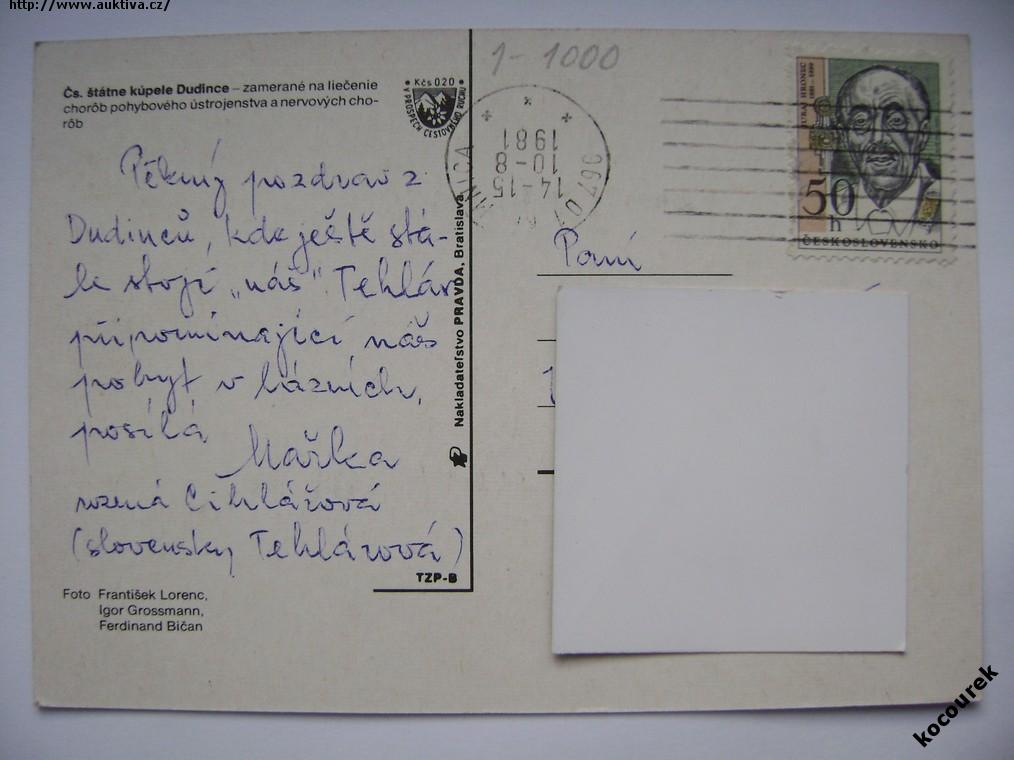 http://www.auktiva.cz/
Čs. štátne kúpele Dudince – zamerané na liečenie
chorôb pohybového ústrojenstva a nervových cho-
rôb
Kčs 020
V PROSPECH CESTOVNÉHO RUCHU
Pěkný pozdrav z
Dudinců, kde ještě stá-
le stojí „náš“ Tehlár
připomínající náš
pobyt v lázních,
posílá
Mařka
rozená Cihlářová
(slovensky Tehlárová)
Foto František Lorenc,
Igor Grossmann,
Ferdinand Bičan
TZP-B
Nakladateľstvo PRAVDA, Bratislava
1-1000
967 01
NICA
14-15
10-8
1981
JURAJ HRONEC
50
h
ČESKOSLOVENSKO
Paní
kocourek